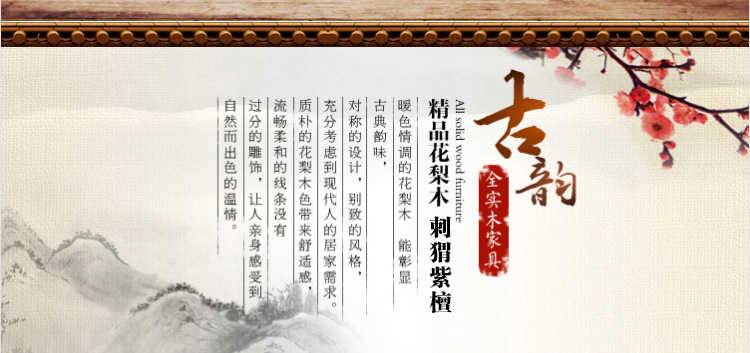 古韵
全实木家具
All solid wood furniture
精品花梨木 刺猬紫檀
暖色情调的花梨木 能彰显
古典韵味,
对称的设计,别致的风格,
充分考虑到现代人的居家需求。
质朴的花梨木色带来舒适感,
流畅柔和的线条没有
过分的雕饰,让人亲身感受到
自然而出色的温情。